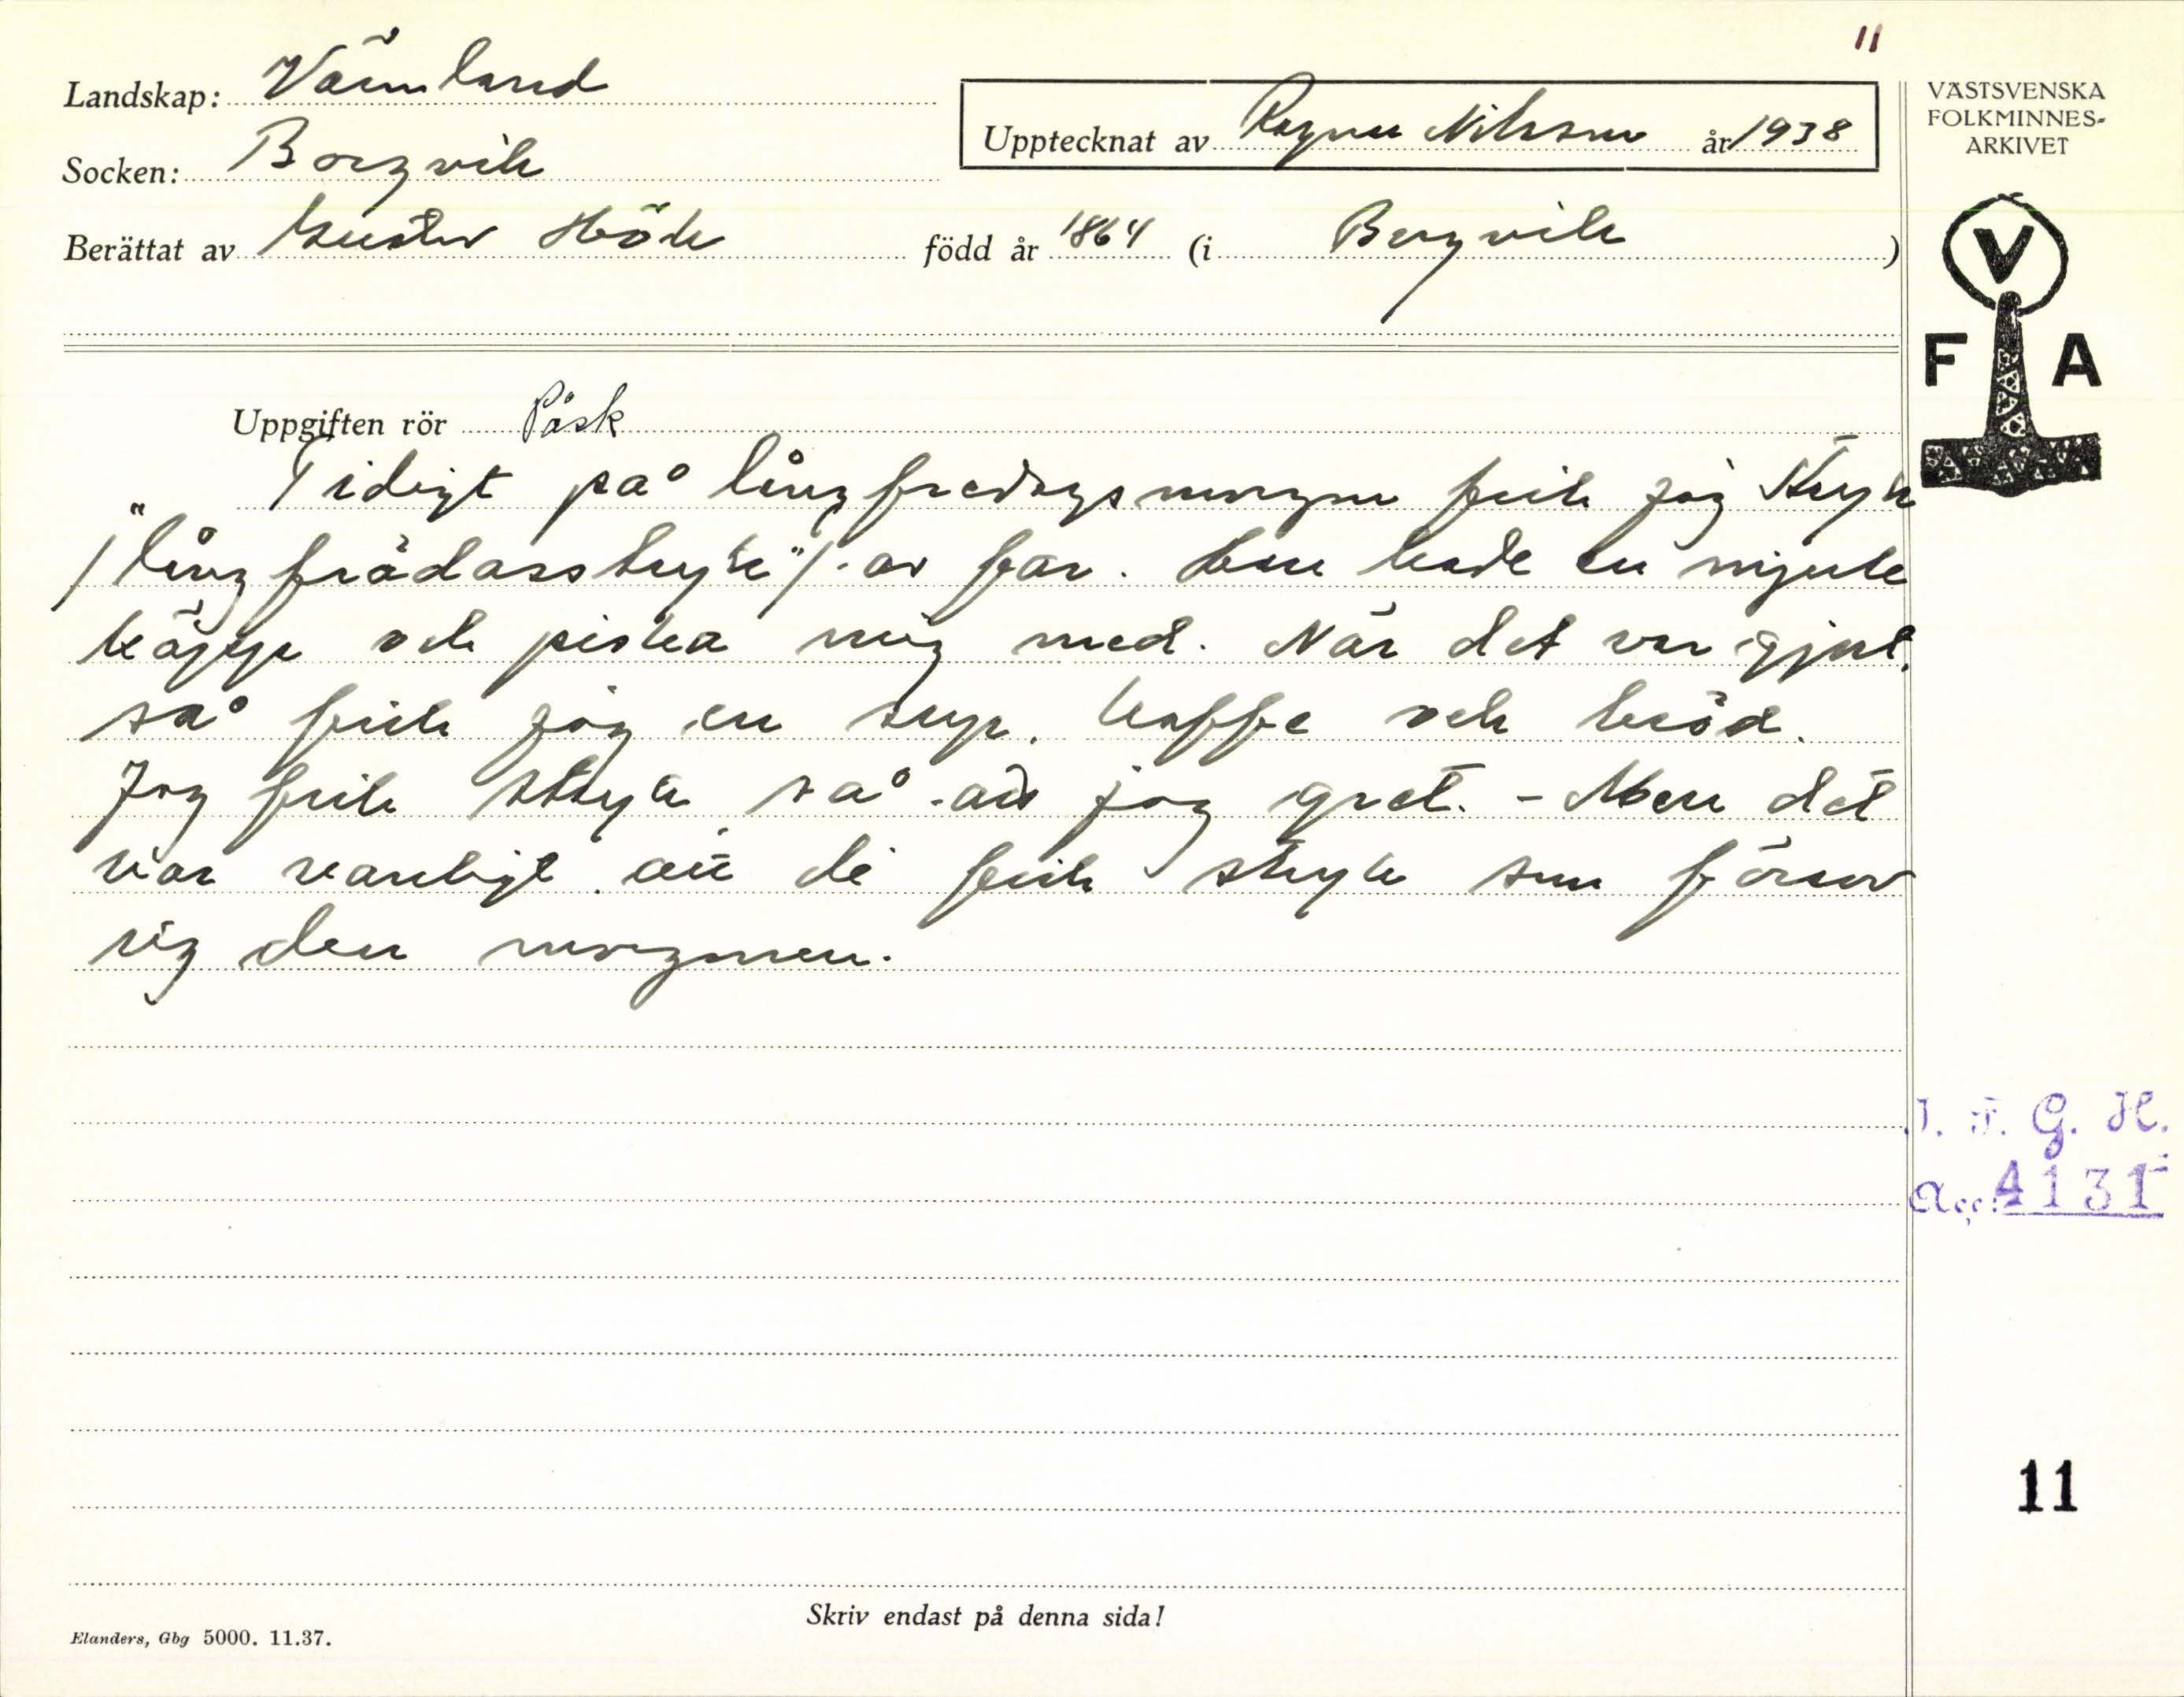 11
Landskap: Värmland
Upptecknat av Ragnar Nilsson år 1938
VÄSTSVENSKA
FOLKMINNES-
ARKIVET
Socken: Borgvik
Berättat av Gustav Höök född år 1864 (i Borgvik)
V
F A
Uppgiften rör Påsk
Tidigt på långfredagsmorgon fick jag stryk
/"långfrådasstryk"/ av far. Han hade en mjuk
käpp och piska mig med. När det var gjort,
så fick jag en sup, kaffe och bröd.
Jag fick stryk så att jag gret. - Men det
var vanligt att di fick stryk som försov
sig den morgonen.
I. F. G. H.
Acc: 4131
11
Skriv endast på denna sida!
Elanders, Gbg 5000. 11.37.